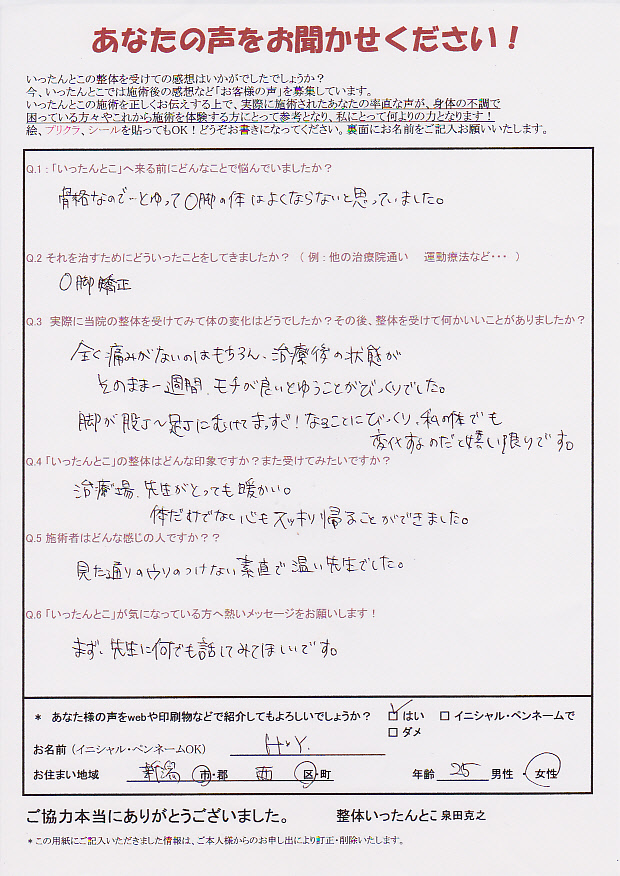 あなたの声をお聞かせください！
いったんとこの整体を受けての感想はいかがでしたでしょうか？
今、いったんとこでは施術後の感想など「お客様の声」を募集しています。
いったんとこの施術を正しくお伝えする上で、実際に施術されたあなたの率直な声が、身体の不調で
困っている方々やこれから施術を体験する方にとって参考となり、私にとって何よりの力となります！
絵、プリクラ、シールを貼ってもOK！どうぞお書きになってください。裏面にお名前をご記入お願いします。
Q.1：「いったんとこ」へ来る前にどんなことで悩んでいましたか？
骨格なので…とゆってO脚の体はよくならないと思っていました。
Q.2 それを治すためにどういったことをしてきましたか？ （ 例：他の治療院通い 運動療法など・・・ ）
O脚矯正
Q.3 実際に当院の整体を受けてみて体の変化はどうでしたか？その後、整体を受けて何かいいことがありましたか？
全く痛みがないのはもちろん、治療後の状態が
そのまま一週間、モチが良いとゆうことがびっくりでした。
脚が股～足にむけてまっすぐ！なることにびっくり、私の体でも
変化するのだと嬉しい限りです。
Q.4 「いったんとこ」の整体はどんな印象ですか？また受けてみたいですか？
治療場、先生がとっても暖かい。
体だけでなく心もスッキリ帰ることができました。
Q.5 施術者はどんな感じの人ですか？？
見た通りのウリのつけない素直で温い先生でした。
Q.6 「いったんとこ」が気になっている方へ熱いメッセージをお願いします！
まず、先生に何でも話してみてほしいです。
＊ あなた様の声をwebや印刷物などで紹介してもよろしいでしょうか？ □ はい □ イニシャル・ペンネームで
□ ダメ
お名前（イニシャル・ペンネームOK） H・Y.
お住まい地域 新潟 市・郡 西 区・町 年齢 25 男性 ・ 女性
ご協力本当にありがとうございました。 整体いったんとこ 泉田克之
＊この用紙にご記入いただきました情報は、ご本人様からのお申し出により訂正・削除いたします。